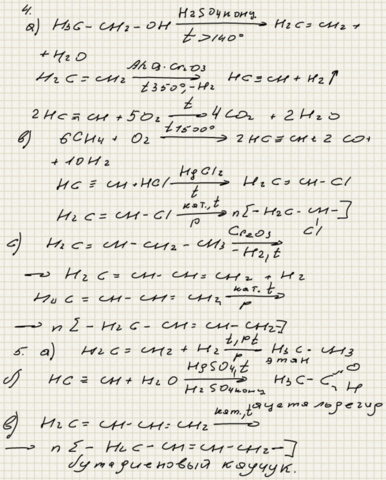 4.
а) H3C-CH2-OH H2SO4конц t>140° H2C=CH2+
+H2O
H2C=CH2 Al2O3·Cr2O3 t350°,-H2 HC≡CH+H2↑
2HC≡CH+5O2 t 4CO2+2H2O
в) 6CH4+O2 t1500° 2HC≡CH+2CO+
+10H2
HC≡CH+HCl HgCl2 t H2C=CH-Cl
H2C=CH-Cl кат.,t p n[-H2C-CH-]
Cl
с) H2C=CH-CH2-CH3 Cr2O3 -H2,t
→ H2C=CH-CH=CH2+H2
H2C=CH-CH=CH2 кат.t p
→ n[-H2C-CH=CH-CH2-]
5. а) H2C=CH2+H2 t,Pt p H3C-CH3
этан
б) HC≡CH+H2O HgSO4,t H2SO4конц H3C-C O H
ацетальдегид
в) H2C=CH-CH=CH2 кат.,t
→ n[-H2C-CH=CH-CH2-]
бутадиеновый каучук.